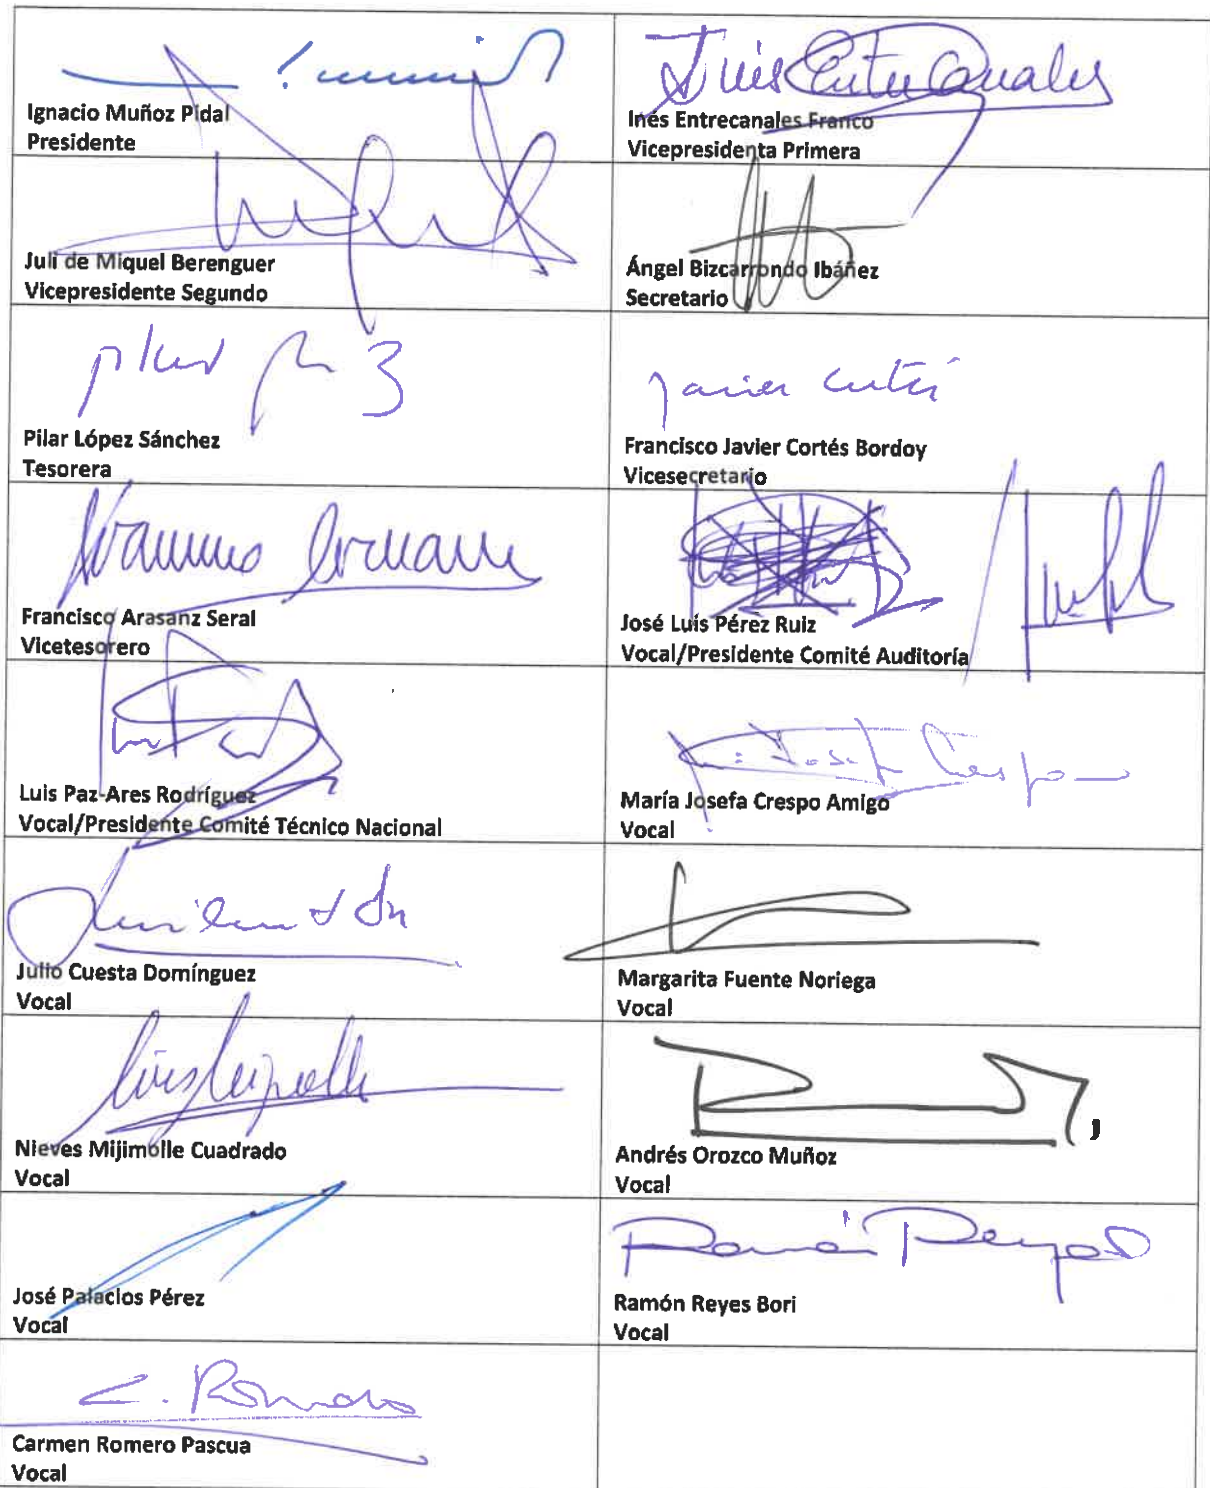 Ignacio Muñoz Pidal
Presidente
Inés Entrecanales Franco
Vicepresidenta Primera
Juli de Miquel Berenguer
Vicepresidente Segundo
Ángel Bizcarrondo Ibáñez
Secretario
Pilar López Sánchez
Tesorera
Javier Cortés
Francisco Javier Cortés Bordoy
Vicesecretario
Francisco Arasanz Seral
Vicetesorero
José Luis Pérez Ruiz
Vocal/Presidente Comité Auditoría
Luis Paz-Ares Rodríguez
Vocal/Presidente Comité Técnico Nacional
Mª Josefa Crespo
María Josefa Crespo Amigo
Vocal
Julio Cuesta Domínguez
Vocal
Margarita Fuente Noriega
Vocal
Nieves Mijimolle Cuadrado
Vocal
Andrés Orozco Muñoz
Vocal
José Palacios Pérez
Vocal
Ramón Reyes
Ramón Reyes Bori
Vocal
C. Romero
Carmen Romero Pascua
Vocal